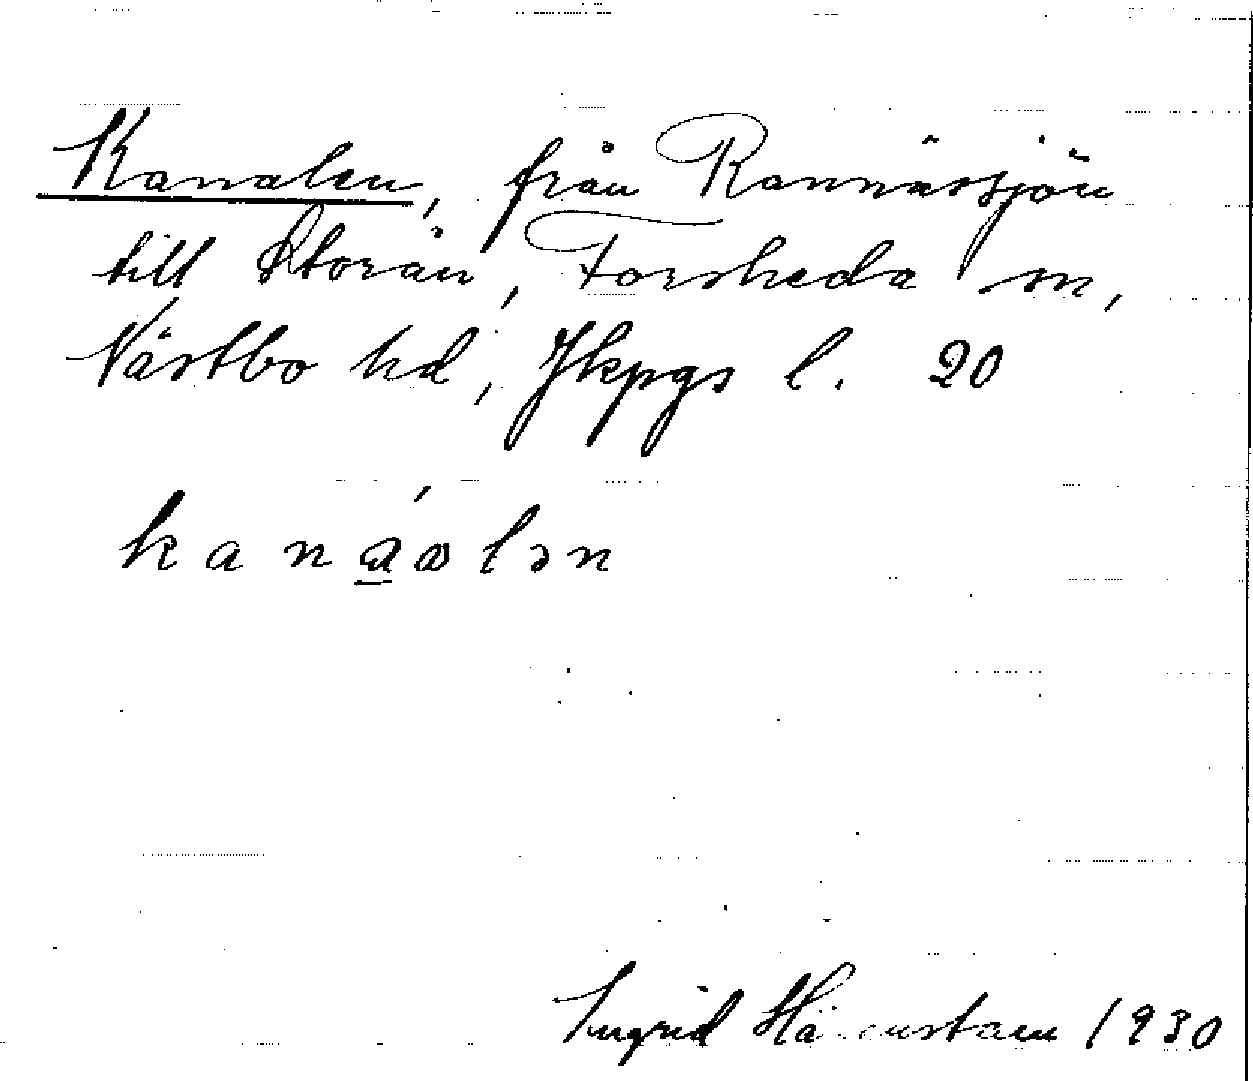 Kanalen, från Rannässjön
till Storån, Forsheda sn,
Västbo hd, Jkpgs l. 20
kana̲ɷ́lən
Ingrid 1930